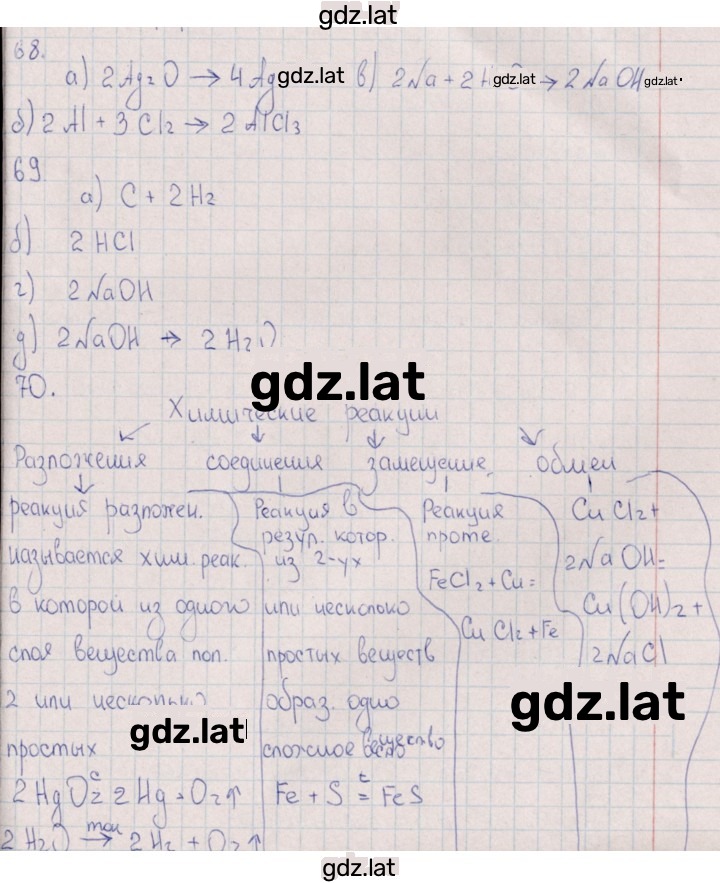 gdz.lat
68.
а) 2Ag₂O → 4Ag gdz.lat в) 2Na + 2H gdz.lat → 2NaOH gdz.lat
б) 2Al + 3Cl₂ → 2AlCl₃
69.
а) C + 2H₂
б) 2HCl
г) 2NaOH
д) 2NaOH → 2H₂O
gdz.lat
70.
Химические реакции
Разложения соединения замещение обмен
реакция разложен.
называется хим. реак.
в которой из одного
слож вещества пол.
2 или несколько
простых
gdz.lat
2HgO = 2Hg + O₂↑
2H₂O ток → 2H₂ + O₂↑
Реакция в
резул. котор.
из 2-ух
или несколько
простых веществ
образ. одно
сложное вещество
Fe + S t = FeS
Реакция
проте.
FeCl₂ + Cu =
CuCl₂ + Fe
CuCl₂ +
2NaOH =
Cu(OH)₂ +
2NaCl
gdz.lat
gdz.lat